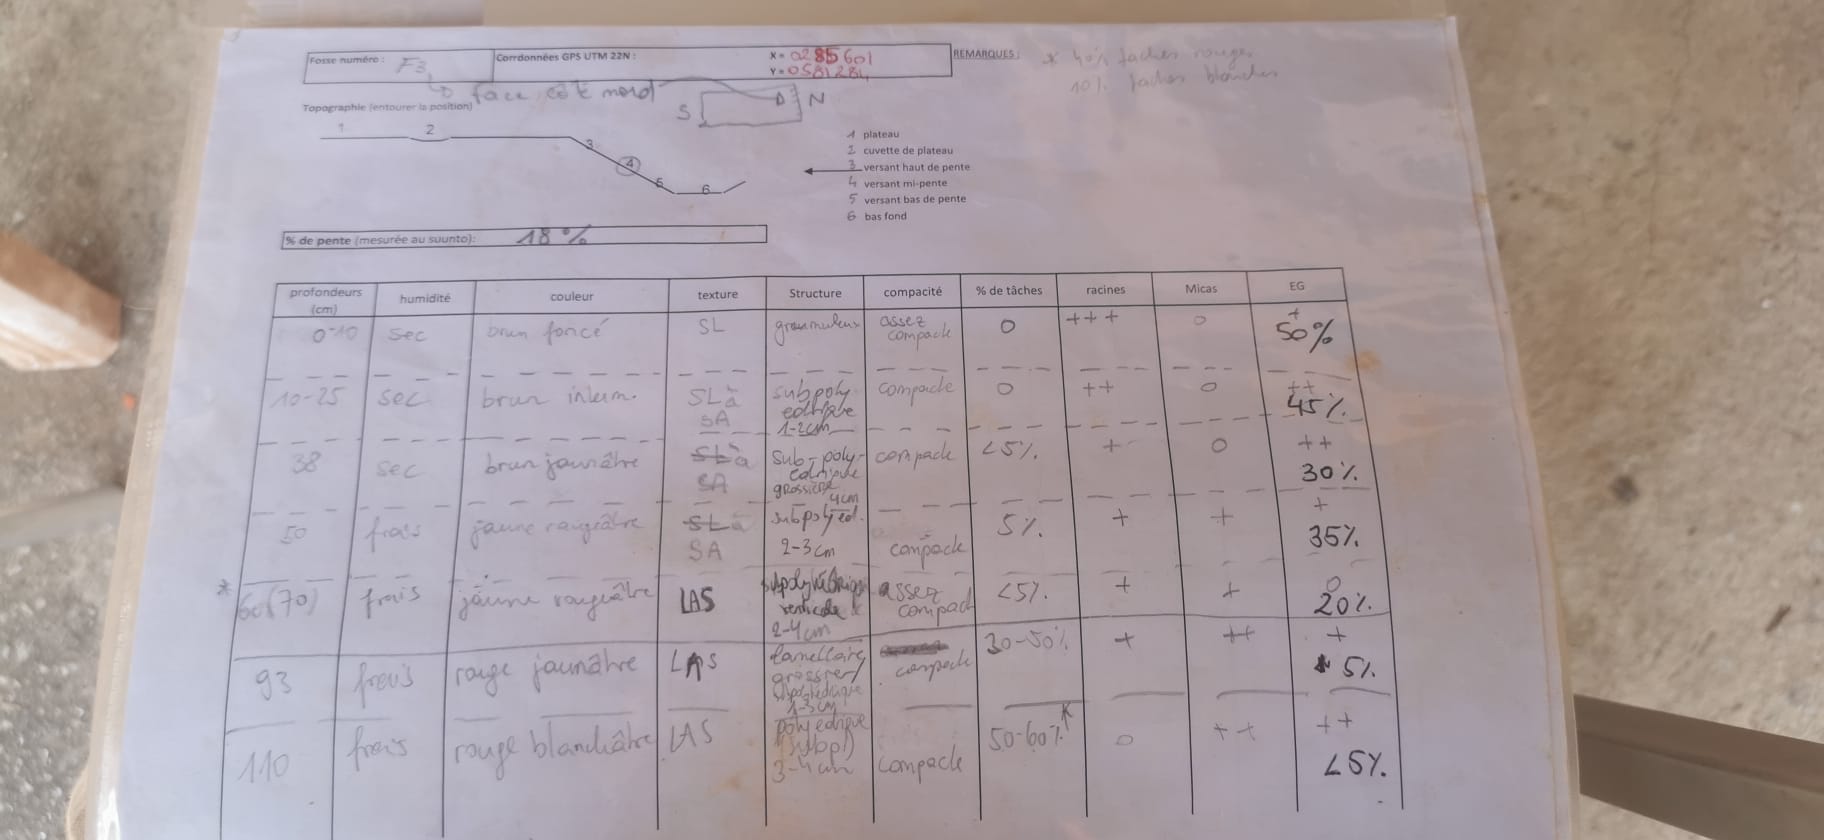 Fosse numéro : F3 Corrdonnées GPS UTM 22N : X = 0285601 REMARQUES : * 40% taches rouges
Y = 0581284 10% taches blanches
face côté nord
S N
Topographie (entourer la position)
1 2 3 4 5 6
1 plateau
2 cuvette de plateau
3 versant haut de pente
4 versant mi-pente
5 versant bas de pente
6 bas fond
% de pente (mesurée au suunto): 18%
profondeurs (cm) humidité couleur texture Structure compacité % de tâches racines Micas EG
0-10 sec brun foncé SL assez compacte 0 +++ 0 + 50%
10-25 sec brun interm. SL à SA subpoly edrique 1-2cm compacte 0 ++ 0 ++ 45%
38 sec brun jaunâtre SL à SA sub-poly-edrique grossière 4cm compacte <5% + 0 ++ 30%
50 frais jaune rougeâtre SL à SA subpolyed. 2-3cm compacte 5% + + + 35%
* 60(70) frais jaune rougeâtre LAS verticale 2-4cm assez compact <5% + + 0 20%
93 frais rouge jaunâtre LAS lamellaire 1-3cm compacte 30-50% + ++ + 5%
110 frais rouge blanchâtre LAS polyedrique (subpl) 3-4cm compacte 50-60%* 0 ++ ++ <5%